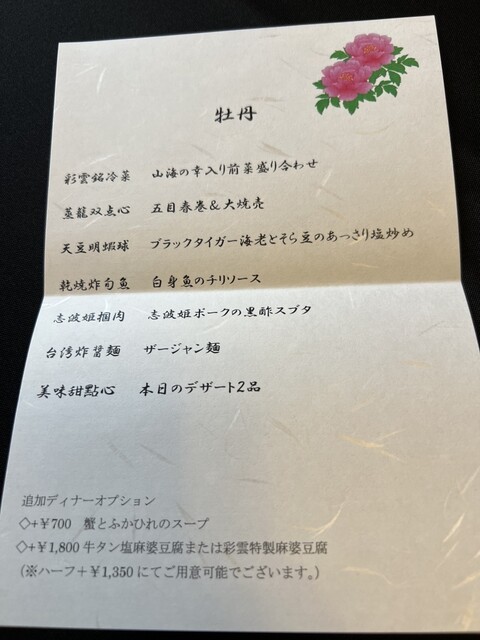 牡丹
彩雲銘冷菜 山海の幸入り前菜盛り合わせ
蒸籠双点心 五目春巻&大焼売
天豆明蝦球 ブラックタイガー海老とそら豆のあっさり塩炒め
乾焼炸旬魚 白身魚のチリソース
志波姫掴肉 志波姫ポークの黒酢スブタ
台湾炸醤麺 ザージャン麺
美味甜點心 本日のデザート2品
追加ディナーオプション
◇+¥700 蟹とふかひれのスープ
◇+¥1,800 牛タン塩麻婆豆腐または彩雲特製麻婆豆腐
(※ハーフ+¥1,350にてご用意可能でございます。)